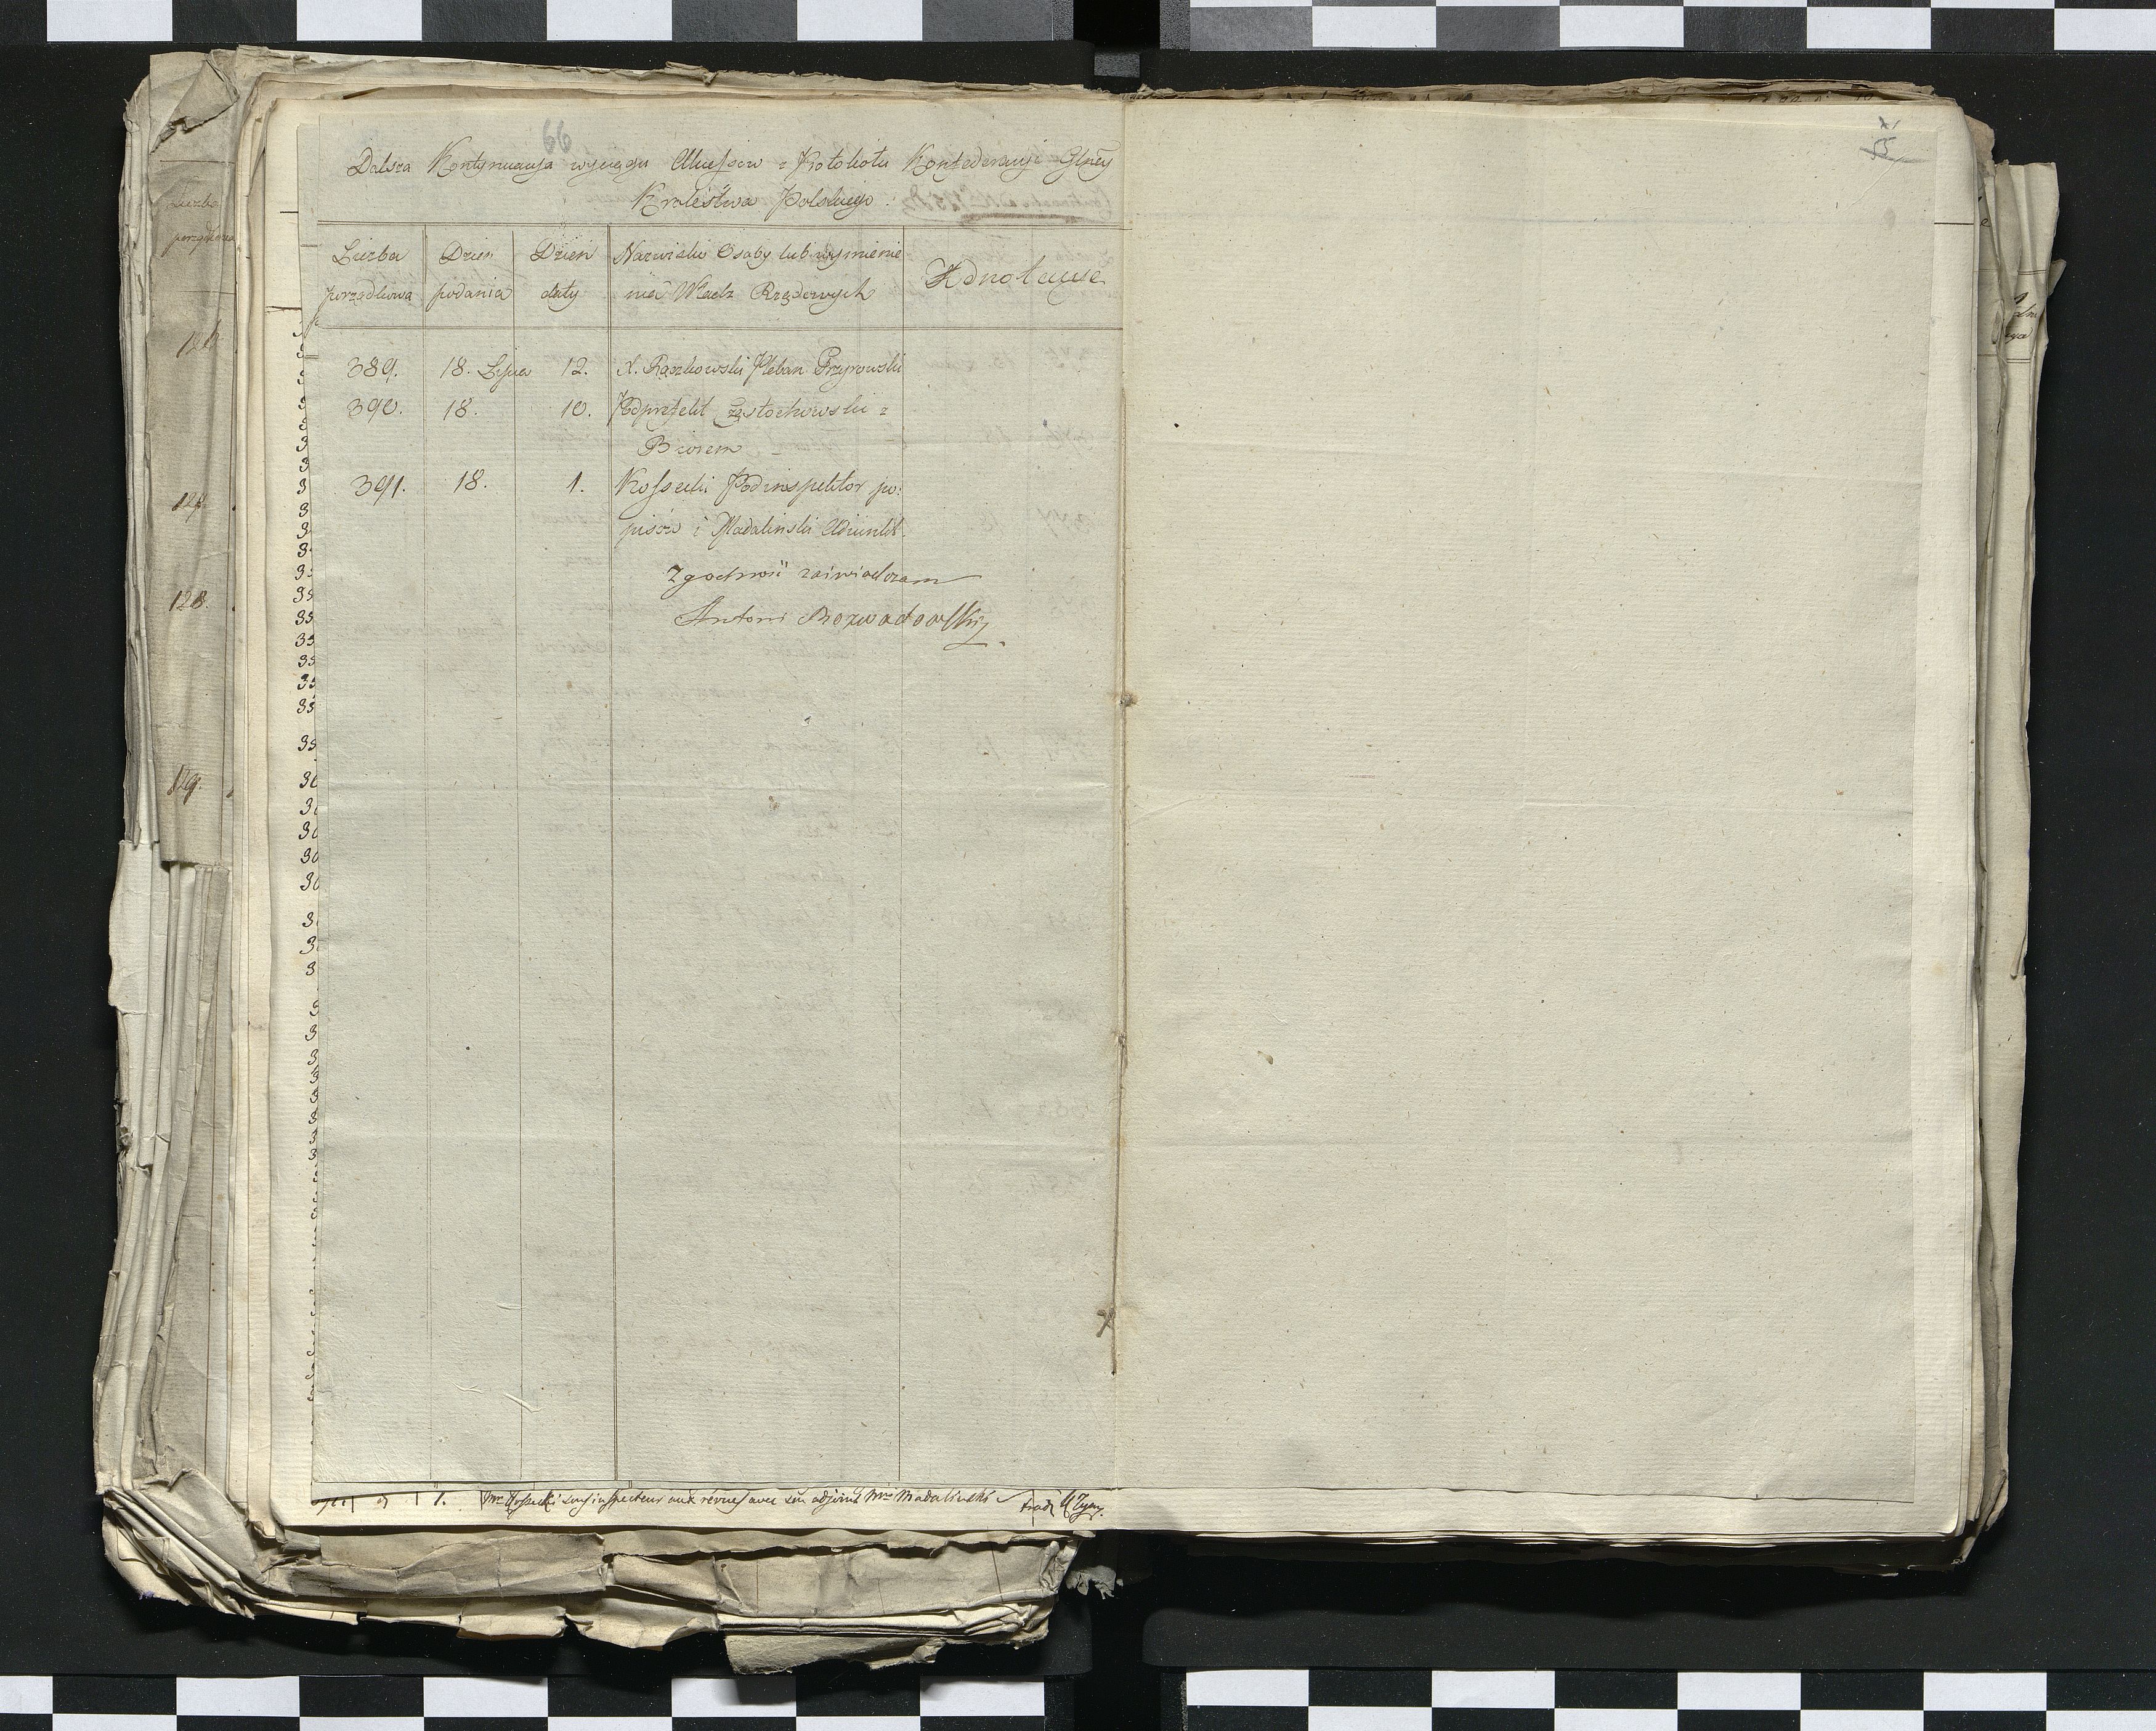 66
Dalsza Kontynuacya wyciągu Akcessów z Protokołu Konfederacyi Glney
Królestwa Polskiego.
Liczba porządkowa
Dzień podania
Dzień daty
Nazwisko Osoby lub wymienie
nie Władz Rządowych
Adnotacye
389. 18. Lipca 12. X. Rączkowski Pleban Przyrowski
390. 18. 10. Podprefekt Częstochowski z
Biórem
391. 18. 1. Kossecki Podinspektor po:
pisów i Madalinski Adiunkt.
Zgodność zaświadczam
Antoni Rozwadowski
Mr Kossecki sousinspecteur aux révues avec son adjoint Mr Madalinski
55
Liczba
porządkowa
128.
129.